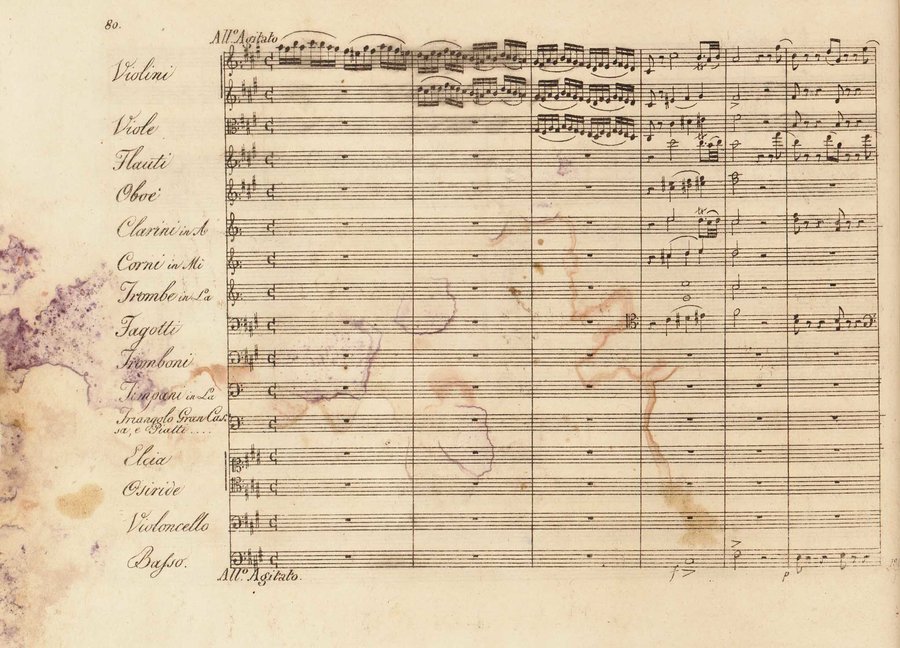 80.
All.º Agitato
Violini
Viole
Flauti
Oboe
Clarini in A
Corni in Mi
Trombe in La
Fagotti
Tromboni
Timpani in La
Triangolo Gran Cas-
sa, e Piatti ....
Elcia
Osiride
Violoncello
Basso.
All.º Agitato.
f
p